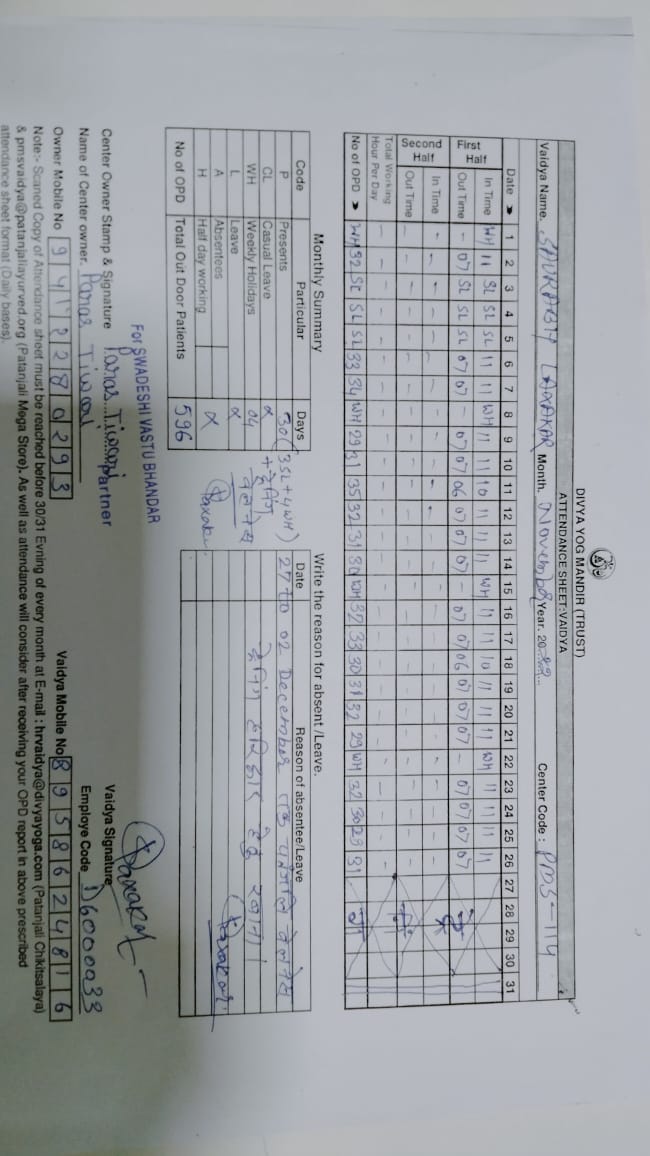 DIVYA YOG MANDIR (TRUST)
ATTENDANCE SHEET:VAIDYA
Vaidya Name. SAURABH LAXAKAR Month. November Year. 2022 Center Code : PMS-114
Date 1 2 3 4 5 6 7 8 9 10 11 12 13 14 15 16 17 18 19 20 21 22 23 24 25 26 27 28 29 30 31
First Half
In Time WH 11 SL SL SL 11 11 WH 11 11 10 11 11 11 WH 11 11 10 11 11 11 WH 11 11 11 11
Out Time - 07 SL SL SL 07 07 - 07 07 06 07 07 07 - 07 07 06 07 07 07 - 07 07 07 07
Second Half
In Time - - - - - - - - - - - - - - - - - - - - - - - - - -
Out Time - - - - - - - - - - - - - - - - - - - - - - - - - -
Total Working Hour Per Day - - - - - - - - - - - - - - - - - - - - - - - - - -
No of OPD WH 32 SL SL SL 33 34 WH 29 31 35 32 31 30 WH 32 33 30 31 32 29 WH 32 30 29 31
Monthly Summary
Code Particular Days
P Presents 30 (3SL+4WH)
CL Casual Leave + ट्रेनिंग
WH Weekly Holidays 04 वेलनेस
L Leave
A Absentees
H Half day working
No of OPD Total Out Door Patients 596
Laxakar
Write the reason for absent /Leave.
Date Reason of absentee/Leave
27 to 02 December तक पतंजलि वेलनेस
ट्रेनिंग हरिद्वार हेतु रवाना।
Laxakar
For SWADESHI VASTU BHANDAR
Partner
Center Owner Stamp & Signature Paras Tiwari
Name of Center owner. Paras Tiwari
Owner Mobile No 9412280293
Laxakar
Vaidya Signature
Employe Code D6000033
Vaidya Mobile No 8958624816
Note:- Scaned Copy of Attendance sheet must be reached before 30/31 Evning of every month at E-mail : hrvaidya@divyayoga.com (Patanjali Chikitsalaya)
& pmsvaidya@patanjaliayurved.org (Patanjali Mega Store). As well as attendance will consider after receiving your OPD report in above prescribed
attendance sheet format (Daily bases).